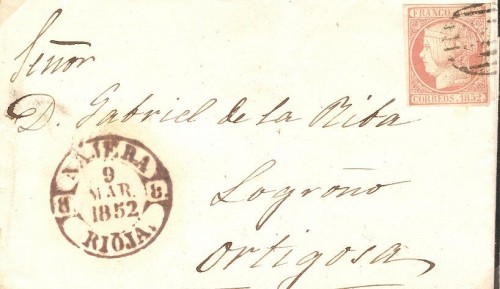 FRANCO
CORREOS. 1852.
Señor
D. Gabriel de la Riba
Logroño
Ortigosa
NAJERA
8 8
9
MAR.
1852
RIOJA.